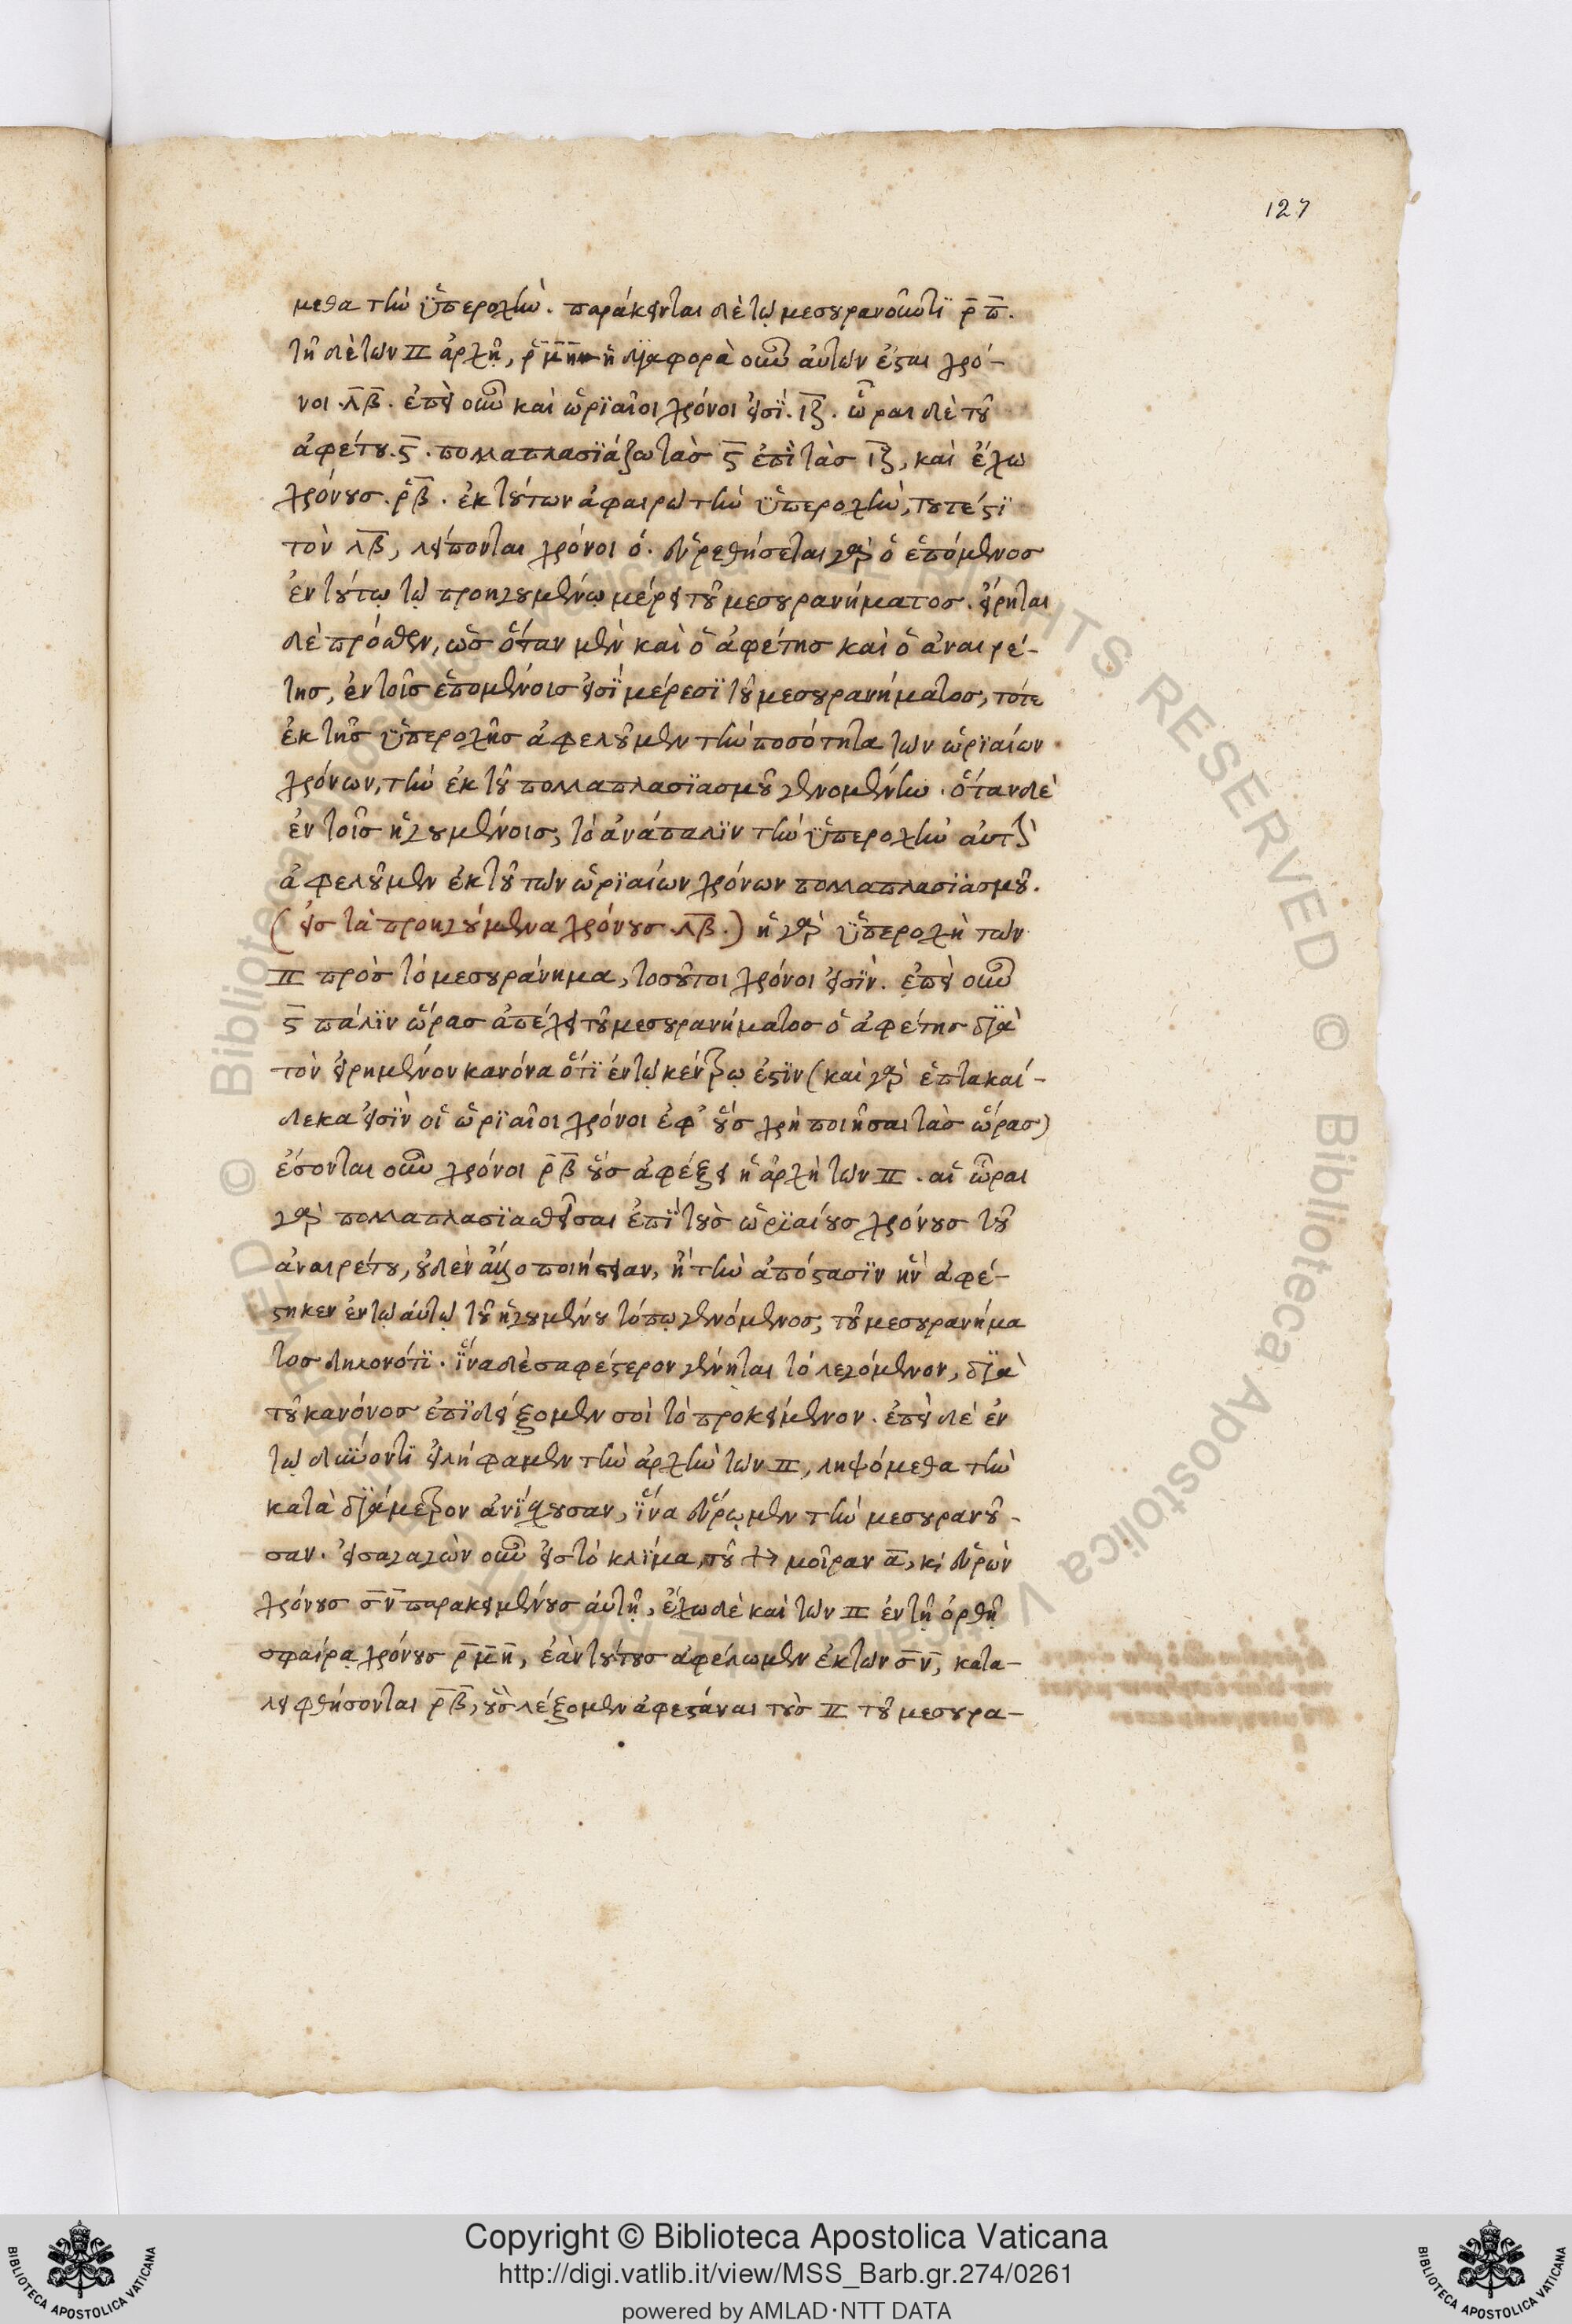 127
μεθα τὴν ὑπεροχήν. παράκεινται δὲ τῷ μεσουρανοῦντι ρ̅π̅.
τῇ δὲ τῶν ♊ ἀρχῇ, ρ̅μ̅η̅ ἡ διαφορὰ οὖν αὐτῶν ἔσται χρό-
νοι .λ̅β̅. ἐπεὶ οὖν καὶ ὡριαῖοι χρόνοι εἰσί .ι̅ζ̅. ὧραι δὲ τοῦ
ἀφέτου .ς̅. πολλαπλασιάζω τὰς ς̅ ἐπὶ τὰς ι̅ζ̅, καὶ ἔχω
χρόνους .ρ̅β̅. ἐκ τούτων ἀφαιρῶ τὴν ὑπεροχήν, τουτέστι
τὸν λ̅β̅, λείπονται χρόνοι ο̅. εὑρεθήσεται γὰρ ὁ ἑπόμενος
ἐν τούτῳ τῷ προηγουμένῳ μέρει τοῦ μεσουρανήματος. εἴρηται
δὲ πρόσθεν, ὡς ὅταν μὲν καὶ ὁ ἀφέτης καὶ ὁ ἀναιρέ-
της, ἐν τοῖς ἑπομένοις εἰσὶ μέρεσι τοῦ μεσουρανήματος, τότε
ἐκ τῆς ὑπεροχῆς ἀφελοῦμεν τὴν ποσότητα τῶν ὡριαίων
χρόνων, τὴν ἐκ τοῦ πολλαπλασιασμοῦ γενομένην. ὅταν δὲ
ἐν τοῖς ἡγουμένοις, τὸ ἀνάπαλιν τὴν ὑπεροχὴν αὐτὴν
ἀφελοῦμεν ἐκ τοῦ τῶν ὡριαίων χρόνων πολλαπλασιασμοῦ.
(εἰς τὰ προηγούμενα χρόνους .λ̅β̅.) ἡ γὰρ ὑπεροχὴ τῶν
♊ πρὸς τὸ μεσουράνημα, τοσοῦτοι χρόνοι εἰσίν. ἐπεὶ οὖν
ς̅ πάλιν ὥρας ἀπέχει τοῦ μεσουρανήματος ὁ ἀφέτης διὰ
τὸν εἰρημένον κανόνα ὅτι ἐν τῷ κέντρῳ ἐστίν (καὶ γὰρ ἑπτακαί-
δεκα εἰσὶν οἱ ὡριαῖοι χρόνοι ἐφ᾽ οὓς χρὴ ποιῆσαι τὰς ὥρας)
ἔσονται οὖν χρόνοι ρ̅β̅ οὓς ἀφέξει ἡ ἀρχὴ τῶν ♊. αἱ ὧραι
γὰρ πολλαπλασιασθεῖσαι ἐπὶ τοὺς ὡριαίους χρόνους τοῦ
ἀναιρέτου, οὐδὲν ἄλλο ποιήσειαν, ἢ τὴν ἀπόστασιν ἣν ἀφέ-
στηκεν ἐν τῷ αὐτῷ τοῦ ἡγουμένου τόπῳ γενόμενος, τοῦ μεσουρανήμα
τος δηλονότι. ἵνα δὲ σαφέστερον γένηται τὸ λεγόμενον, διὰ
τοῦ κανόνος ἐπιδείξομεν σοὶ τὸ προκείμενον. ἐπεὶ δὲ ἐν
τῷ δύνοντι εἰλήφαμεν τὴν ἀρχὴν τῶν ♊, ληψόμεθα τὴν
κατὰ διάμετρον ἀνίσχουσαν, ἵνα εὕρωμεν τὴν μεσουρανοῦ-
σαν. εἰσαγαγὼν οὖν εἰς τὸ κλίμα τοῦ ♐ μοῖραν α̅, κ; εὑρὼν
χρόνους σ̅ν̅ παρακειμένους αὐτῇ, ἔχω δὲ καὶ τῶν ♊ ἐν τῇ ὀρθῇ
σφαίρᾳ χρόνους ρ̅μ̅η̅, ἐὰν τούτους ἀφέλωμεν ἐκ τῶν σ̅ν̅, κατα-
λειφθήσονται ρ̅β̅, οὓς λέξομεν ἀφεστάναι τοὺς ♊ τοῦ μεσουρα-
Copyright © Biblioteca Apostolica Vaticana
http://digi.vatlib.it/view/MSS_Barb.gr.274/0261
powered by AMLAD·NTT DATA